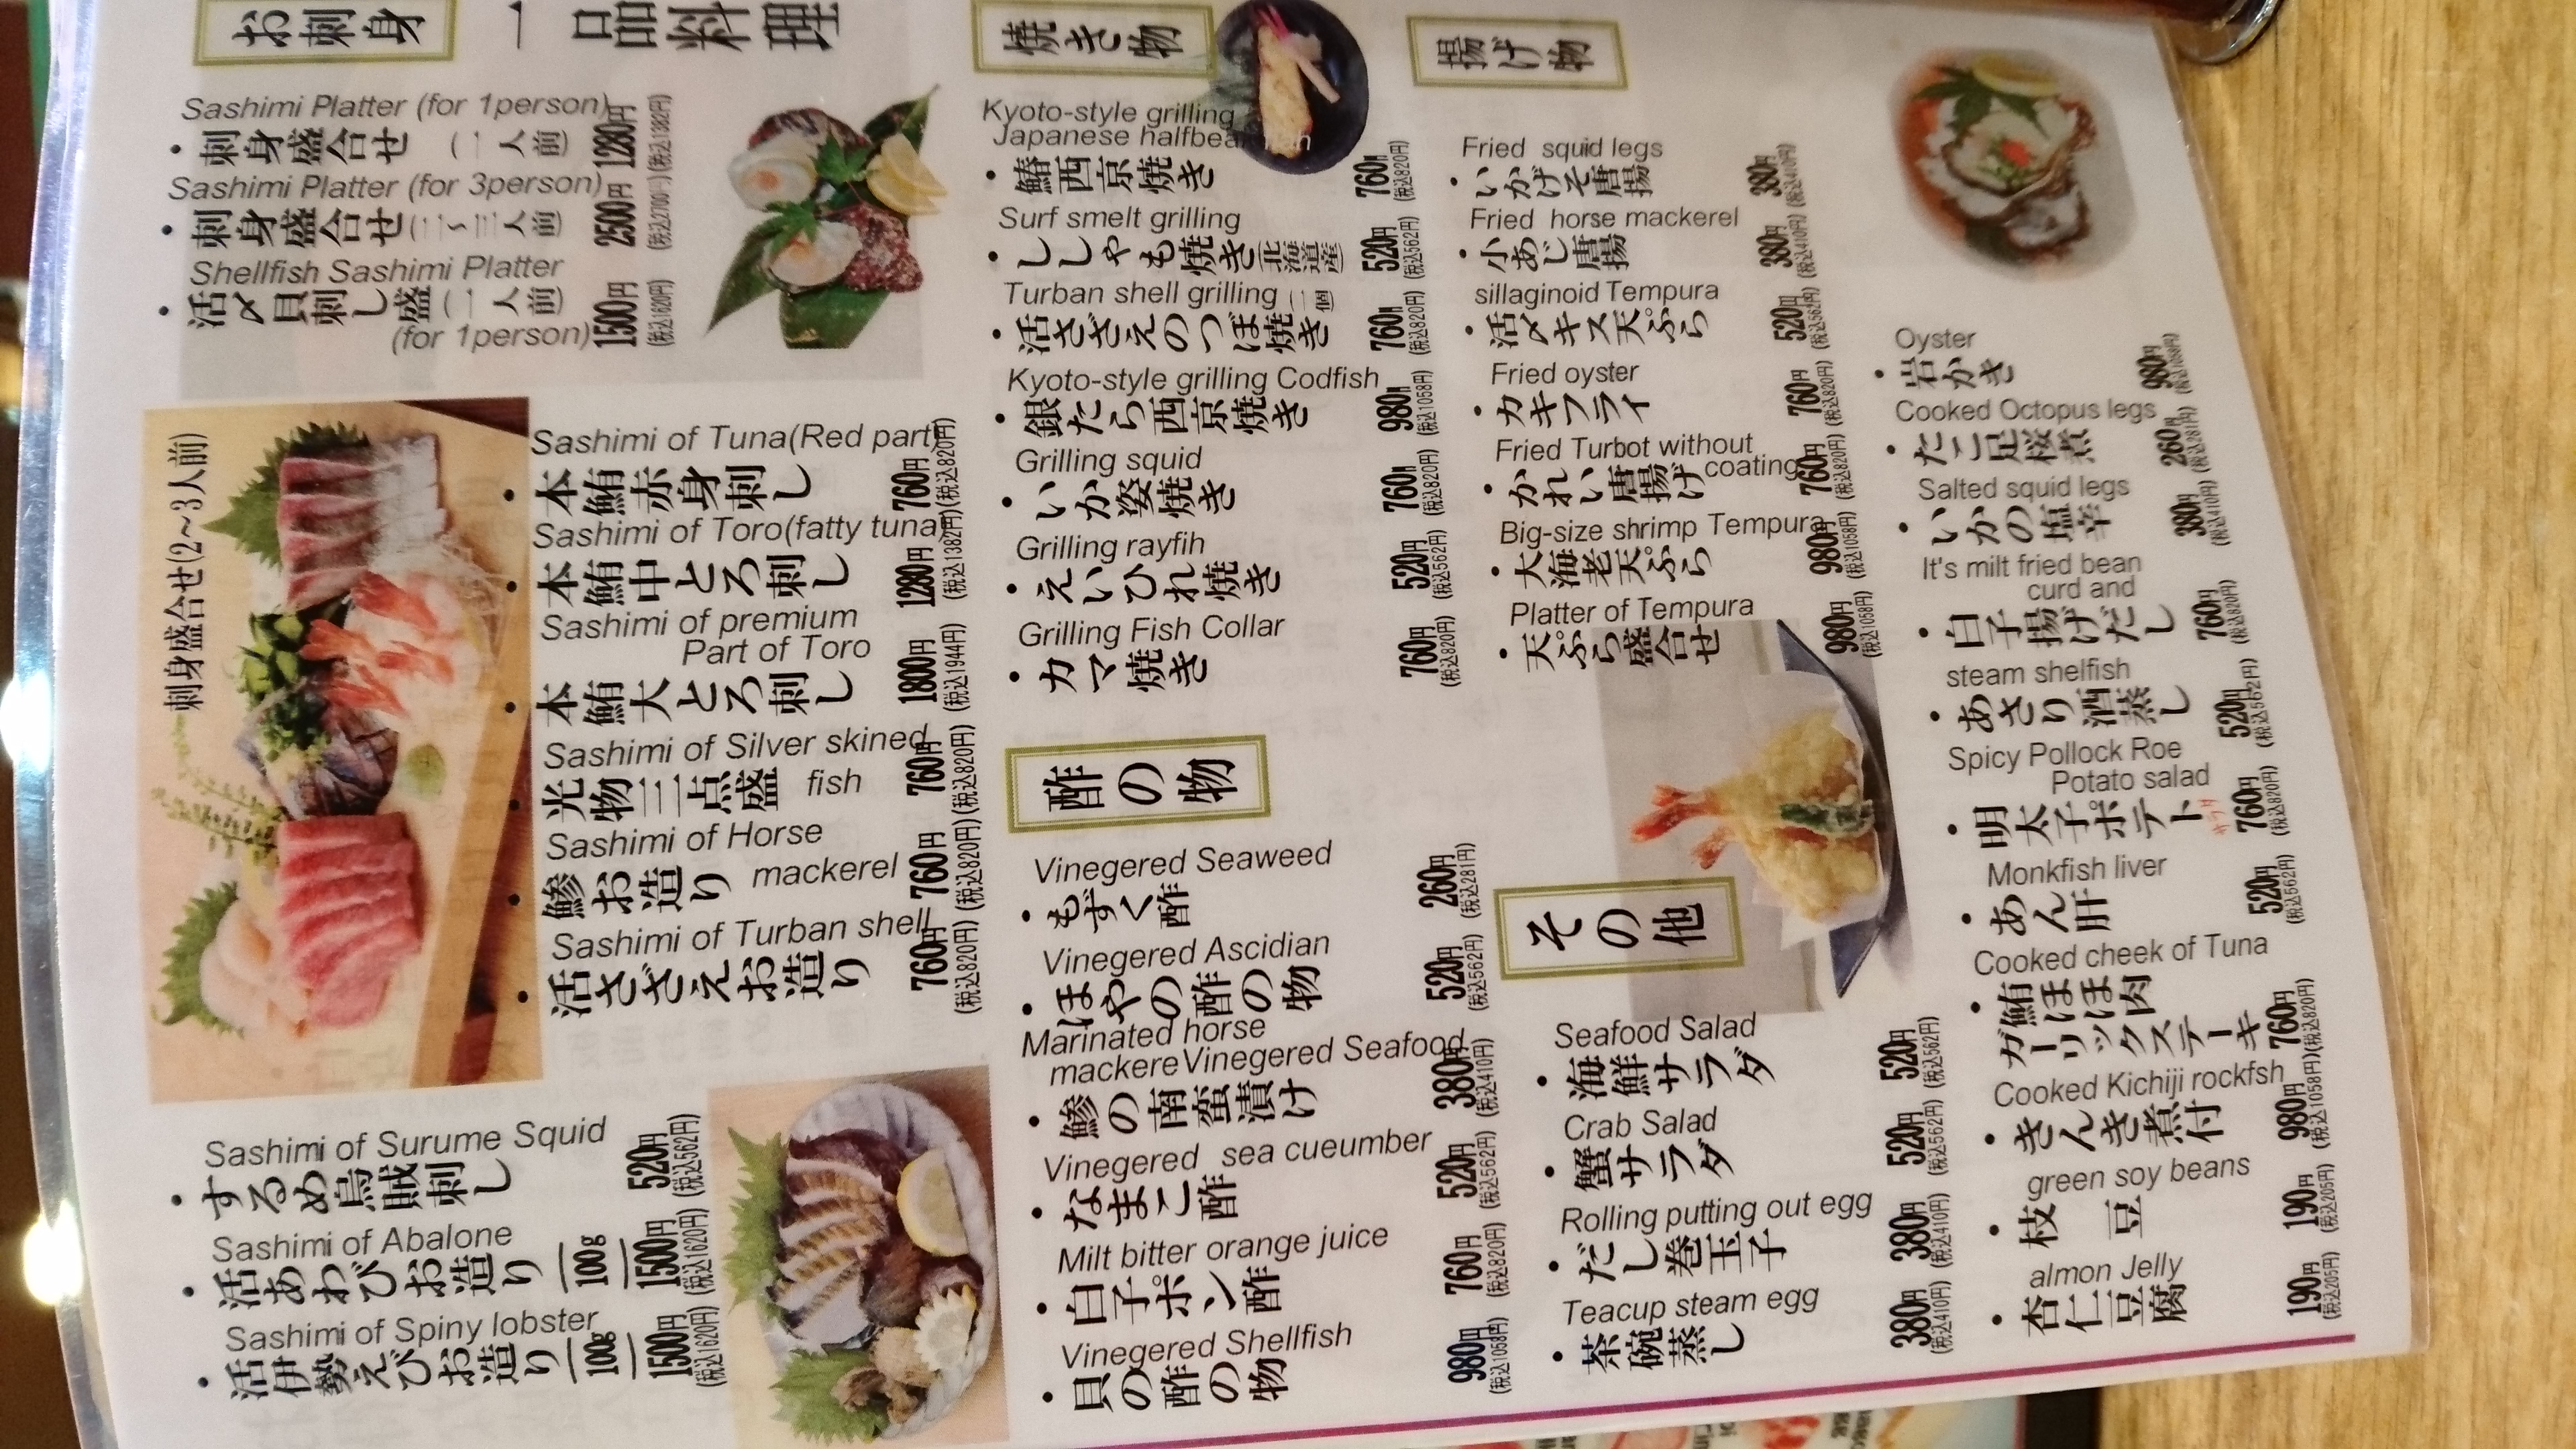 お刺身
一品料理
Sashimi Platter (for 1person)
・刺身盛合せ (一人前) 1280円 (税込1382円)
Sashimi Platter (for 3person)
・刺身盛合せ(二~三人前) 2500円 (税込2700円)
Shellfish Sashimi Platter
・活〆貝刺し盛(一人前) 1500円 (税込1620円)
(for 1person)
刺身盛合せ(2~3人前)
Sashimi of Tuna(Red part)
・本鮪赤身刺し 760円 (税込820円)
Sashimi of Toro(fatty tuna)
・本鮪中とろ刺し 1280円 (税込1382円)
Sashimi of premium
Part of Toro
・本鮪大とろ刺し 1800円 (税込1944円)
Sashimi of Silver skined
fish
・光物三点盛 760円 (税込820円)
Sashimi of Horse
mackerel
・鰺お造り 760円 (税込820円)
Sashimi of Turban shell
・活さざえお造り 760円 (税込820円)
Sashimi of Surume Squid
・するめ烏賊刺し 520円 (税込562円)
Sashimi of Abalone
・活あわびお造り 100g 1500円 (税込1620円)
Sashimi of Spiny lobster
・活伊勢えびお造り 100g 1500円 (税込1620円)
焼き物
Kyoto-style grilling
Japanese halfbea
・鰆西京焼き 760円 (税込820円)
Surf smelt grilling
・ししゃも焼き(北海道産) 520円 (税込562円)
Turban shell grilling
・活さざえのつぼ焼き(一個) 760円 (税込820円)
Kyoto-style grilling Codfish
・銀たら西京焼き 980円 (税込1058円)
Grilling squid
・いか姿焼き 760円 (税込820円)
Grilling rayfih
・えいひれ焼き 520円 (税込562円)
Grilling Fish Collar
・カマ焼き 760円 (税込820円)
酢の物
Vinegered Seaweed
・もずく酢 260円 (税込281円)
Vinegered Ascidian
・ほやの酢の物 520円 (税込562円)
Marinated horse
mackereVinegered Seafood
・鰺の南蛮漬け 380円 (税込410円)
Vinegered sea cueumber
・なまこ酢 520円 (税込562円)
Milt bitter orange juice
・白子ポン酢 760円 (税込820円)
Vinegered Shellfish
・貝の酢の物 980円 (税込1058円)
揚げ物
Fried squid legs
・いかげそ唐揚 380円 (税込410円)
Fried horse mackerel
・小あじ唐揚 380円 (税込410円)
sillaginoid Tempura
・活〆キス天ぷら 520円 (税込562円)
Fried oyster
・カキフライ 760円 (税込820円)
Fried Turbot without
coating
・かれい唐揚げ 760円 (税込820円)
Big-size shrimp Tempura
・大海老天ぷら 980円 (税込1058円)
Platter of Tempura
・天ぷら盛合せ 980円 (税込1058円)
その他
Seafood Salad
・海鮮サラダ 520円 (税込562円)
Crab Salad
・蟹サラダ 520円 (税込562円)
Rolling putting out egg
・だし巻玉子 380円 (税込410円)
Teacup steam egg
・茶碗蒸し 380円 (税込410円)
Oyster
・岩かき 980円 (税込1058円)
Cooked Octopus legs
・たこ足桜煮 260円 (税込281円)
Salted squid legs
・いかの塩辛 380円 (税込410円)
It's milt fried bean
curd and
・白子揚げだし 760円 (税込820円)
steam shelfish
・あさり酒蒸し 520円 (税込562円)
Spicy Pollock Roe
Potato salad
・明太子ポテト 760円 (税込820円)
Monkfish liver
・あん肝 520円 (税込562円)
Cooked cheek of Tuna
・鮪ほほ肉
ガーリックステーキ 760円 (税込820円)
Cooked Kichiji rockfsh
・きんき煮付 980円 (税込1058円)
green soy beans
・枝豆 190円 (税込205円)
almon Jelly
・杏仁豆腐 190円 (税込205円)